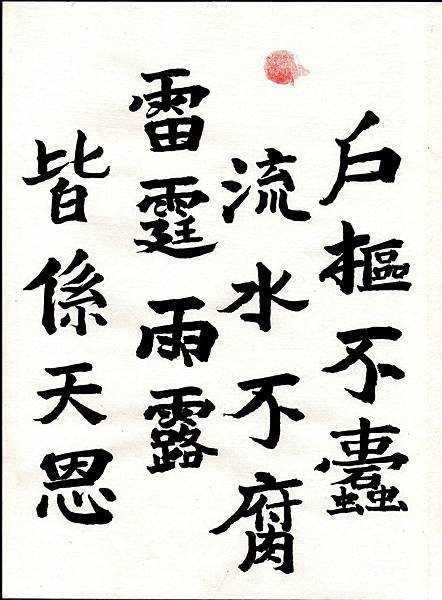 戶樞不蠹
流水不腐
雷霆雨露
皆係天恩